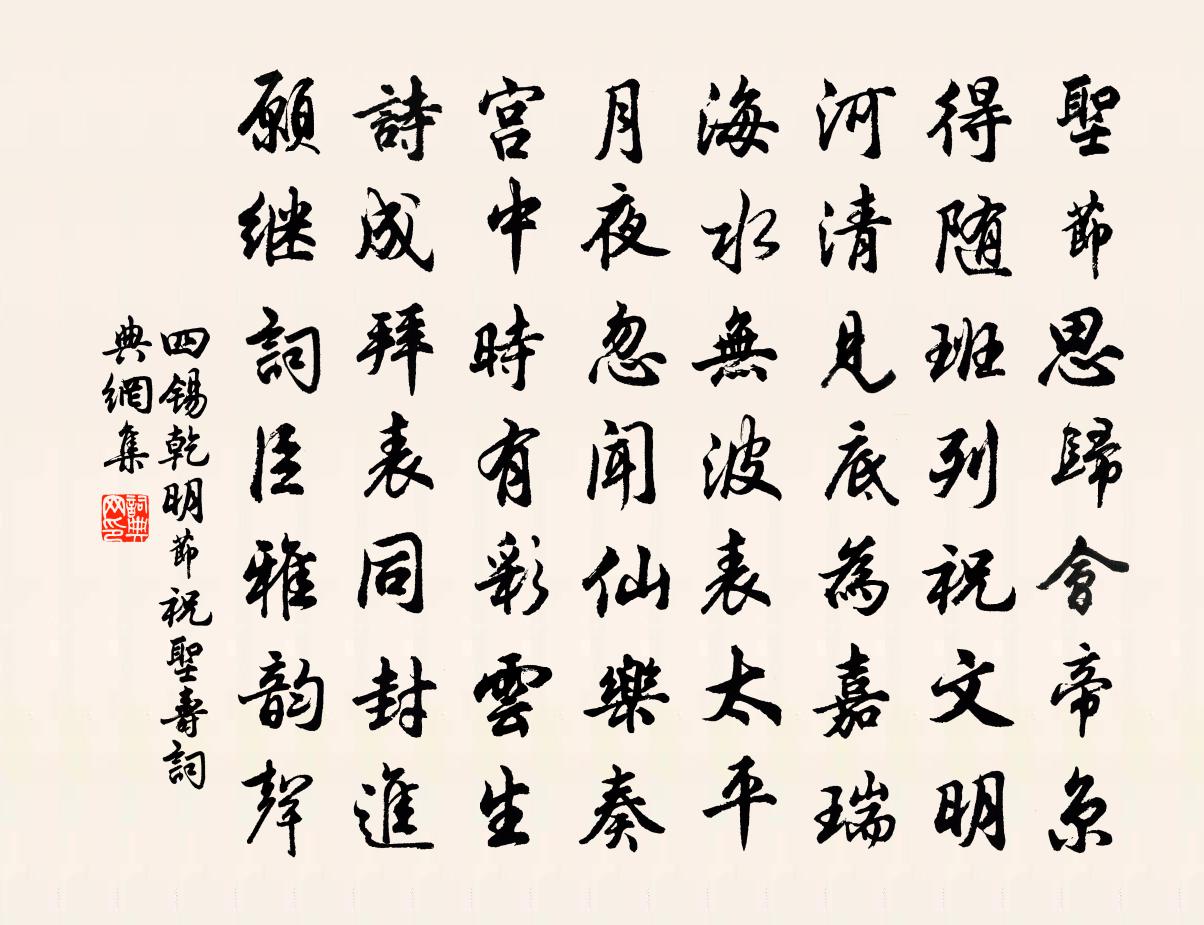 聖節思歸會帝京
得随班列祝文明
河清見底為嘉瑞
海水無波表太平
月夜忽聞仙樂奏
宮中時有彩雲生
詩成拜表同封進
願继詞臣雅韵聲
四錫乾明節祝聖壽詞
典網集
詞典
网印